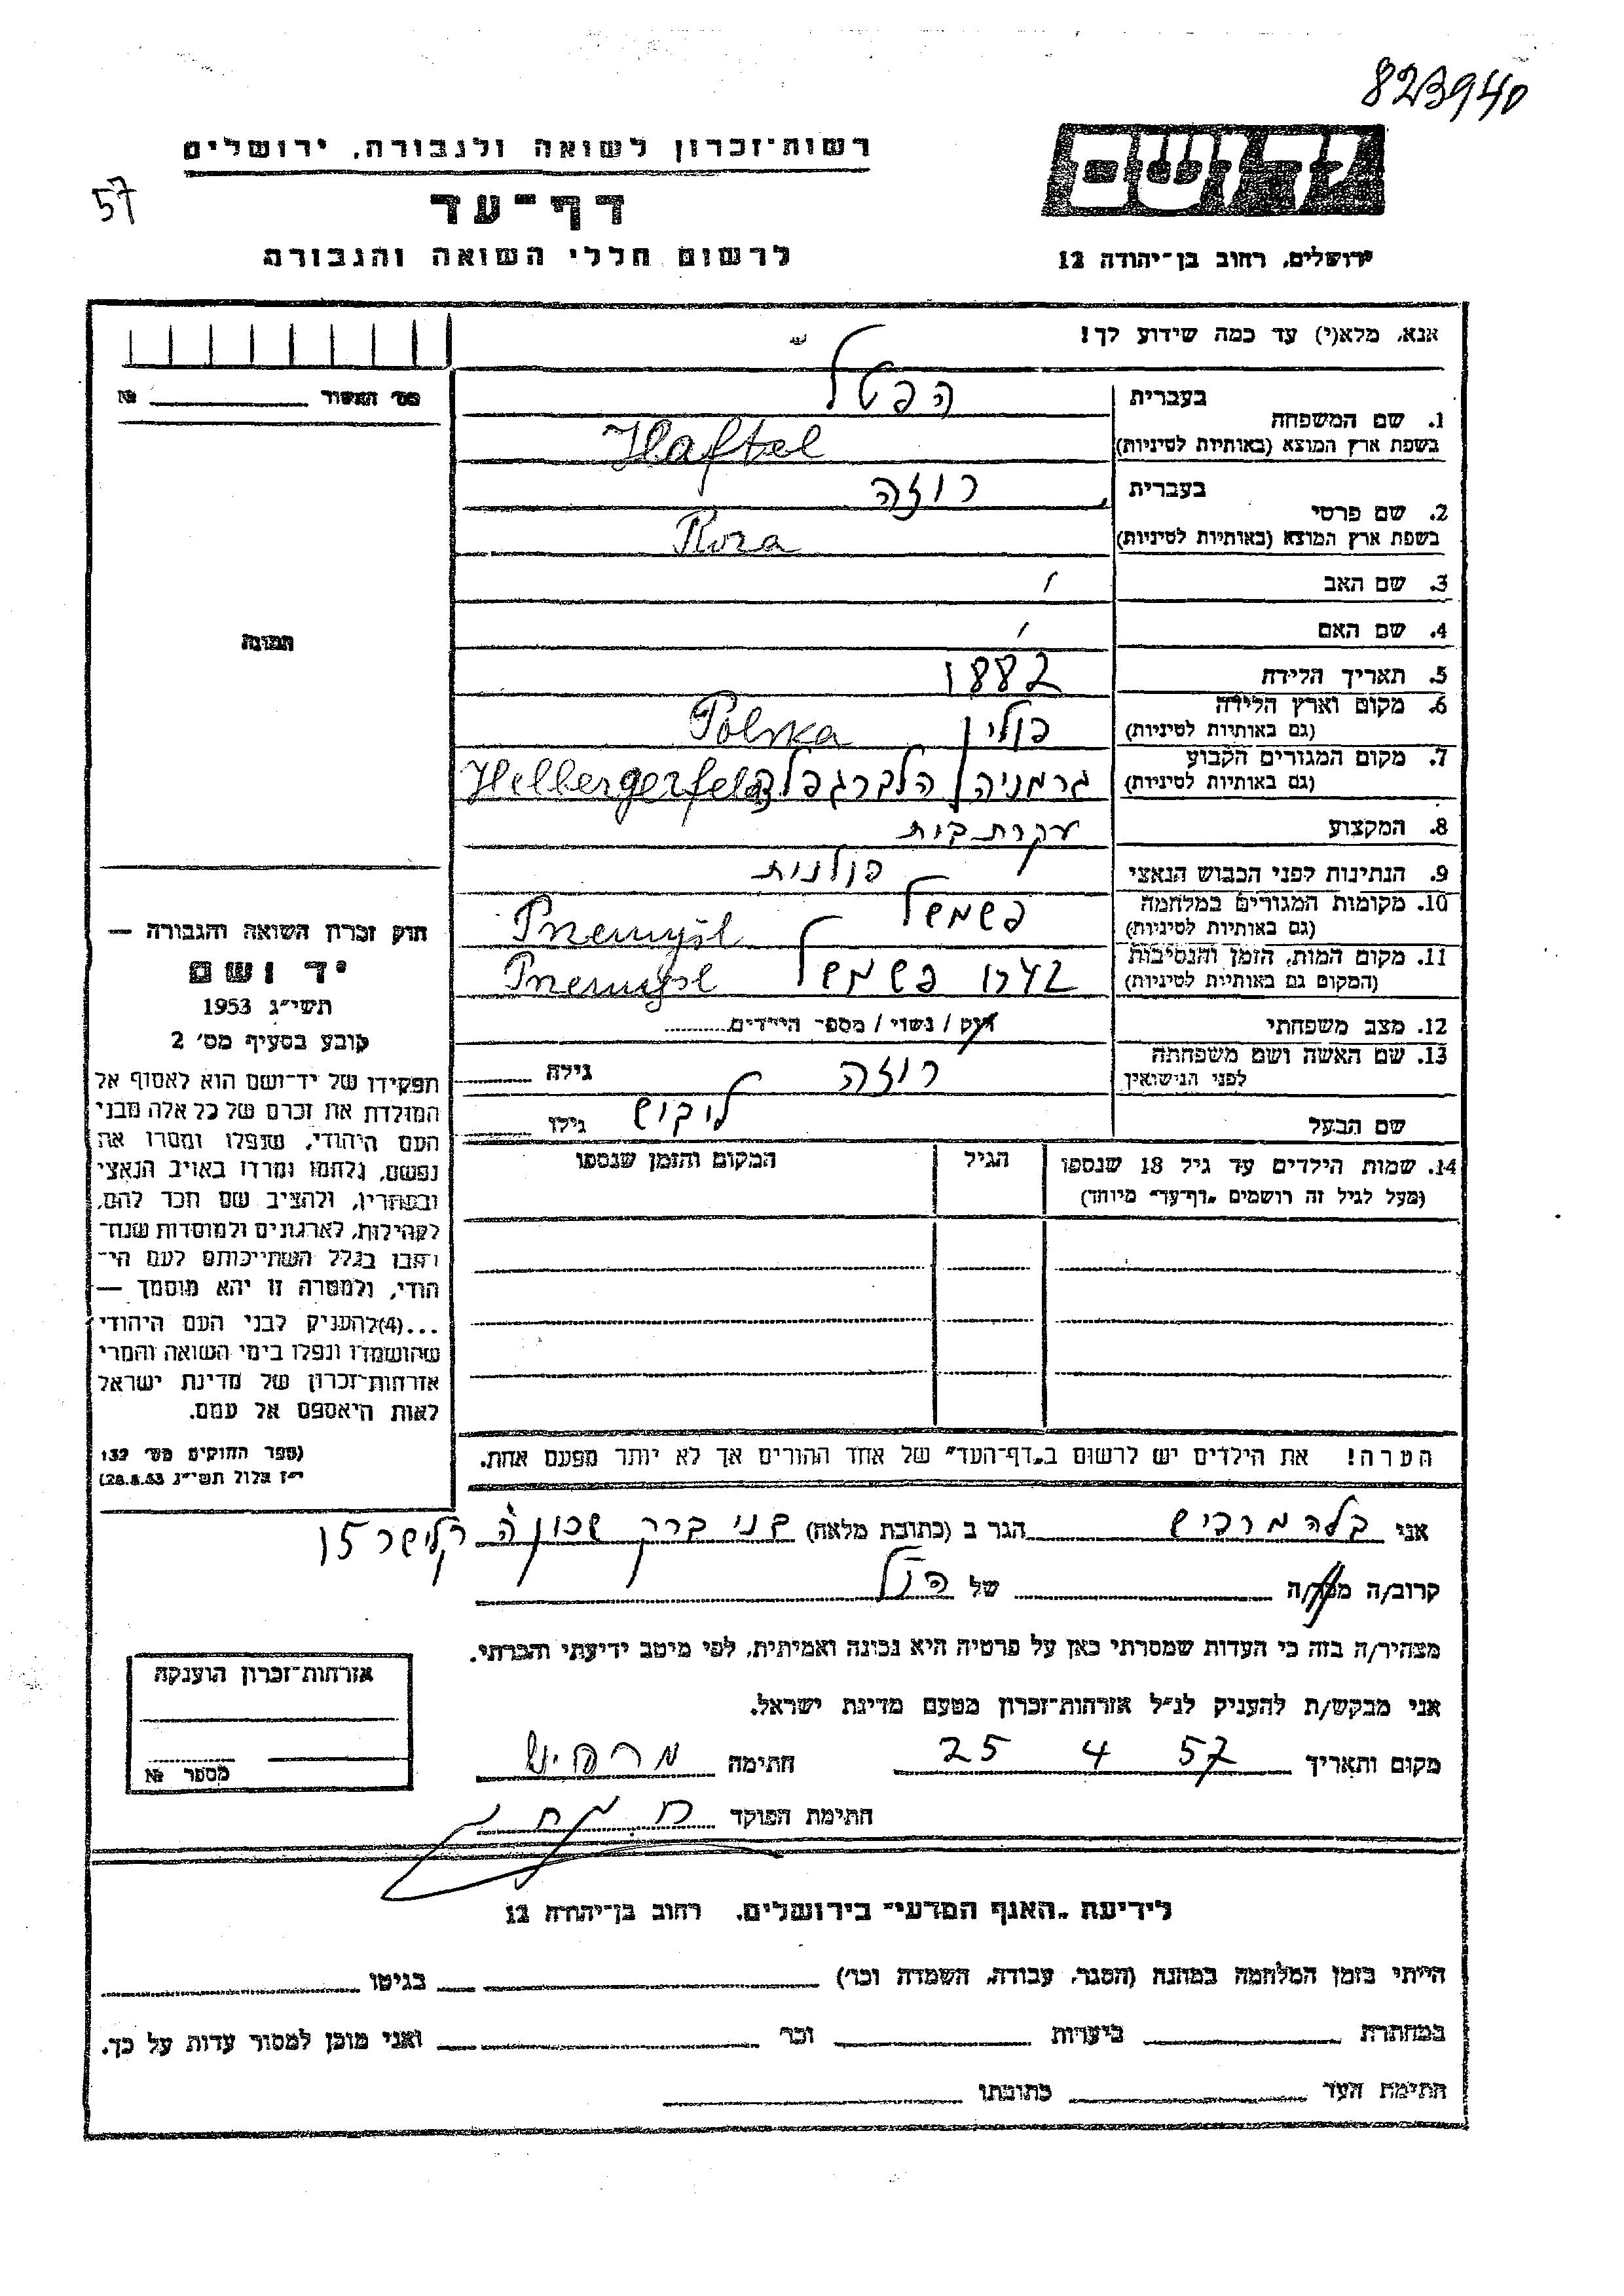 823940
יד ושם
ירושלים, רחוב בן־יהודה 12
רשות־זכרון לשואה ולגבורה, ירושלים
57
דף־עד
לרשום חללי השואה והגבורה
אנא, מלא(י) עד כמה שידוע לך!
מס' האשור № 
תמונה
1. שם המשפחה
בעברית הפטל
בשפת ארץ המוצא (באותיות לטיניות) Haftel
2. שם פרטי
בעברית רוזה
בשפת ארץ המוצא (באותיות לטיניות) Roza
3. שם האב
4. שם האם
5. תאריך הלידה 1882
6. מקום וארץ הלידה פולין Polska
(גם באותיות לטיניות)
7. מקום המגורים הקבוע גרמניה הלברגפלד Helbergerfeld
(גם באותיות לטיניות)
8. המקצוע עקרת בית
9. הנתינות לפני הכבוש הנאצי פולנית
10. מקומות המגורים במלחמה פשמישל Przemyśl
(גם באותיות לטיניות)
11. מקום המות, הזמן והנסיבות 1942 פשמישל Przemyśl
(המקום גם באותיות לטיניות)
12. מצב משפחתי רוק / נשוי / מספר הילדים
13. שם האשה ושם משפחתה רוזה גילה
לפני הנישואין
שם הבעל ליבוש גילו
14. שמות הילדים עד גיל 18 שנספו הגיל המקום והזמן שנספו
(מעל לגיל זה רושמים "דף־עד" מיוחד)
הערה! את הילדים יש לרשום ב"דף־העד" של אחד ההורים אך לא יותר מפעם אחת.
חוק זכרון השואה והגבורה —
יד ושם
תשי"ג 1953
קובע בסעיף מס' 2
תפקידו של יד־ושם הוא לאסוף אל
המולדת את זכרם של כל אלה מבני
העם היהודי, שנפלו ומסרו את
נפשם, נלחמו ומרדו באויב הנאצי
ובעוזריו, ולהציב שם וזכר להם,
לקהילות, לארגונים ולמוסדות שנח־
רבו בגלל השתייכותם לעם הי־
הודי, ולמטרה זו יהא מוסמך —
...(4)להעניק לבני העם היהודי
שהושמדו ונפלו בימי השואה והמרי
אזרחות־זכרון של מדינת ישראל
לאות היאספם אל עמם.
(ספר החוקים מס' 132
י"ז אלול תשי"ג 28.8.53)
אני בלה מרביש הגר ב (כתובת מלאה) בני ברק שכונה ה קלישר 15
קרוב/ה מכר/ה של הנ"ל
מצהיר/ה בזה כי העדות שמסרתי כאן על פרטיה היא נכונה ואמיתית, לפי מיטב ידיעתי והכרתי.
אני מבקש/ת להעניק לנ"ל אזרחות־זכרון מטעם מדינת ישראל.
מקום ותאריך 25 4 57 חתימה
חתימת הפוקד
אזרחות־זכרון הוענקה
מספר №
לידיעת "האגף המדעי" בירושלים, רחוב בן־יהודה 12
הייתי בזמן המלחמה במחנה (הסגר, עבודה, השמדה וכו') בגיטו
במחתרת ביערות וכו' ואני מוכן למסור עדות על כך.
חתימת העד כתובתו